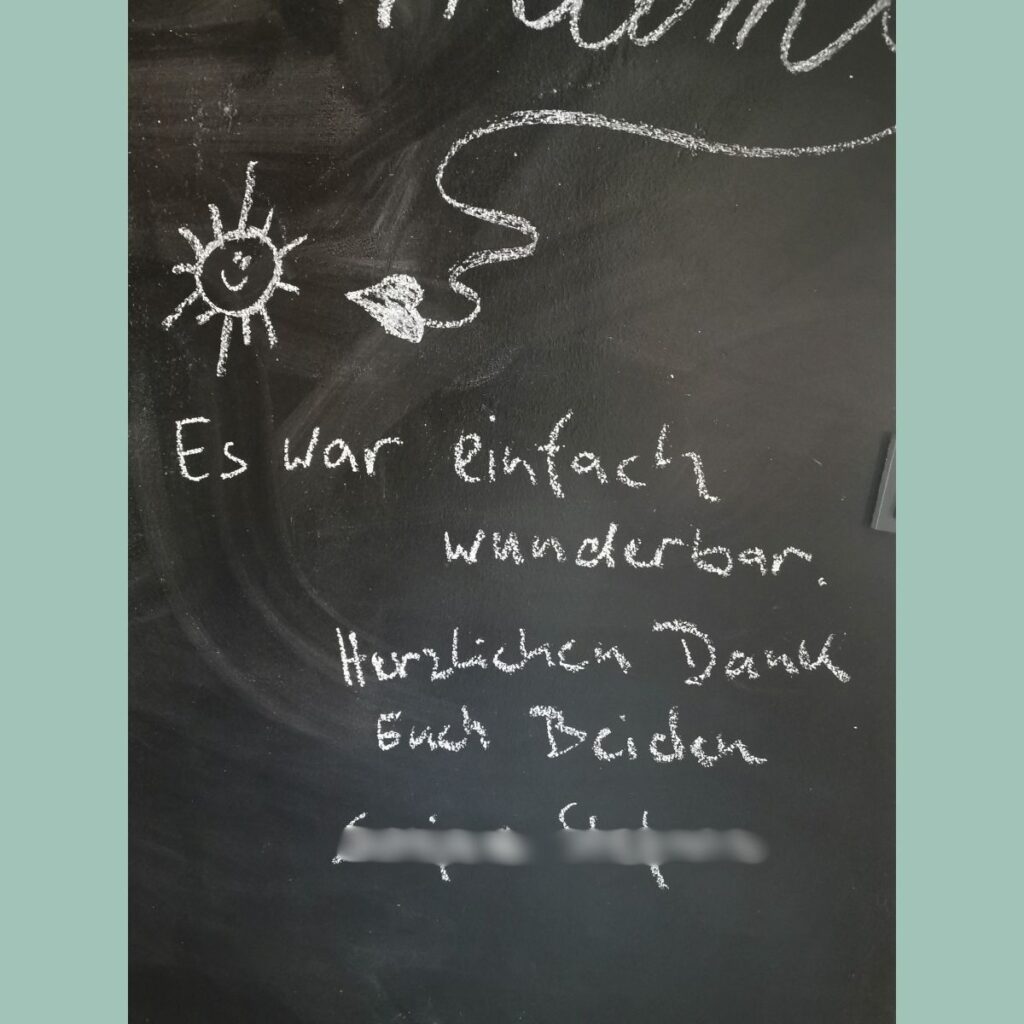 Es war einfach
wunderbar.
Herzlichen Dank
Euch Beiden